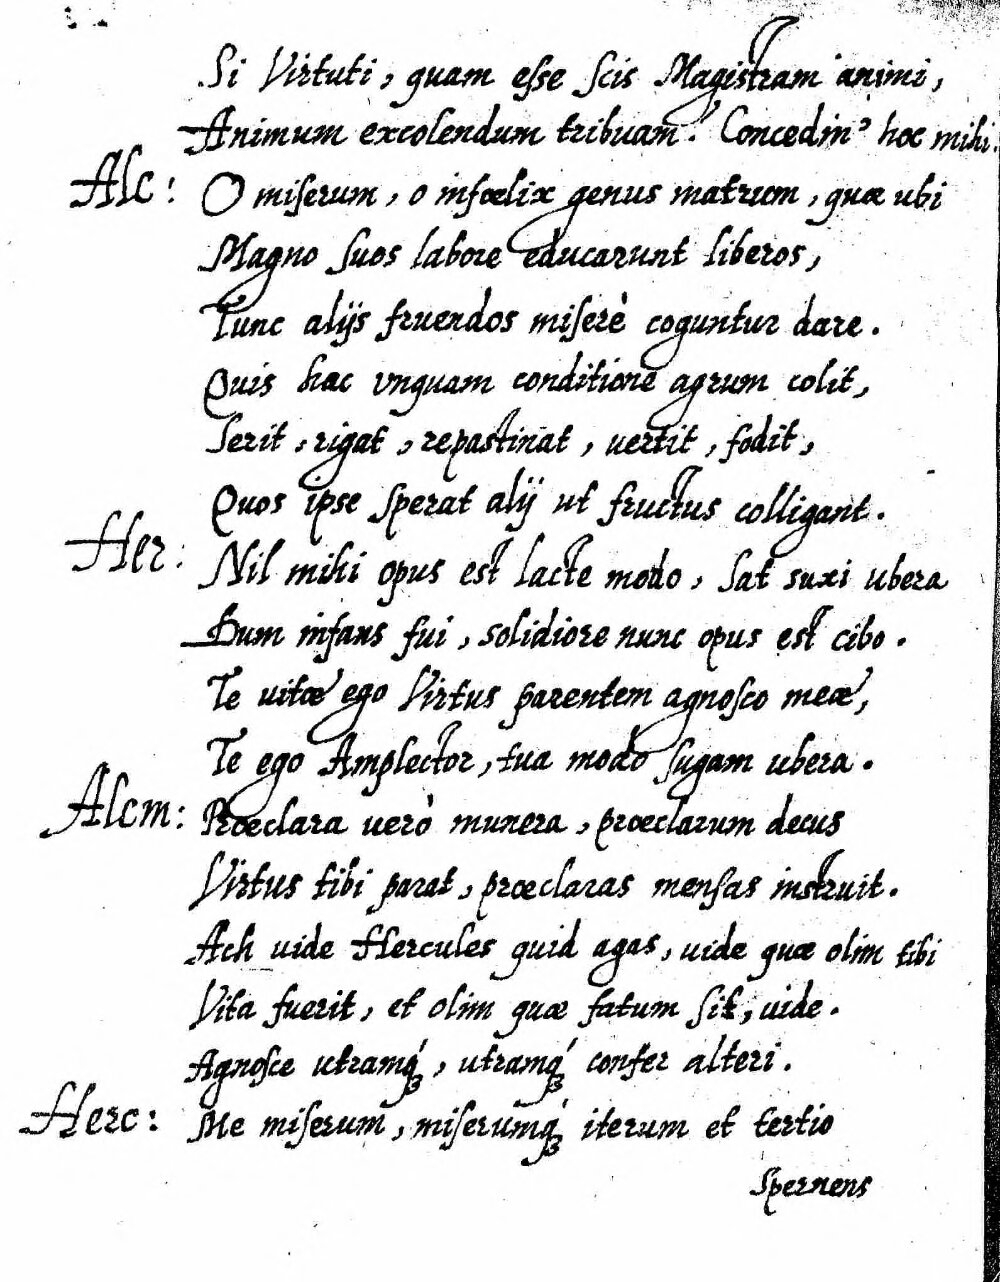 Si Virtuti, quam esse scis Magistram animi,
Animum excolendum tribuam? Concedim⁹ hoc mihi.
Alc: O miserum, o infœlix genus matrum, quæ ubi
Magno suos labore educarunt liberos,
Tunc alijs fruendos miserè coguntur dare.
Quis hac vnquam conditione agrum colit,
Serit, rigat, repastinat, vertit, fodit,
Quos ipse sperat alij ut fructus colligant.
Her: Nil mihi opus est lacte modo, sat suxi ubera
Dum infans fui, solidiore nunc opus est cibo.
Te uitæ ego Virtus parentem agnosco meæ,
Te ego Amplector, tua modo sugam ubera.
Alcm: Præclara uerò munera, præclarum decus
Virtus tibi parat, præclaras mensas instruit.
Ach uide Hercules quid agas, uide quæ olim tibi
Vita fuerit, et olim quæ fatum sit, uide.
Agnosce utramq́ꝫ, utramq́ꝫ confer alteri.
Herc: Me miserum, miserumq́ꝫ iterum et tertio
Spernens